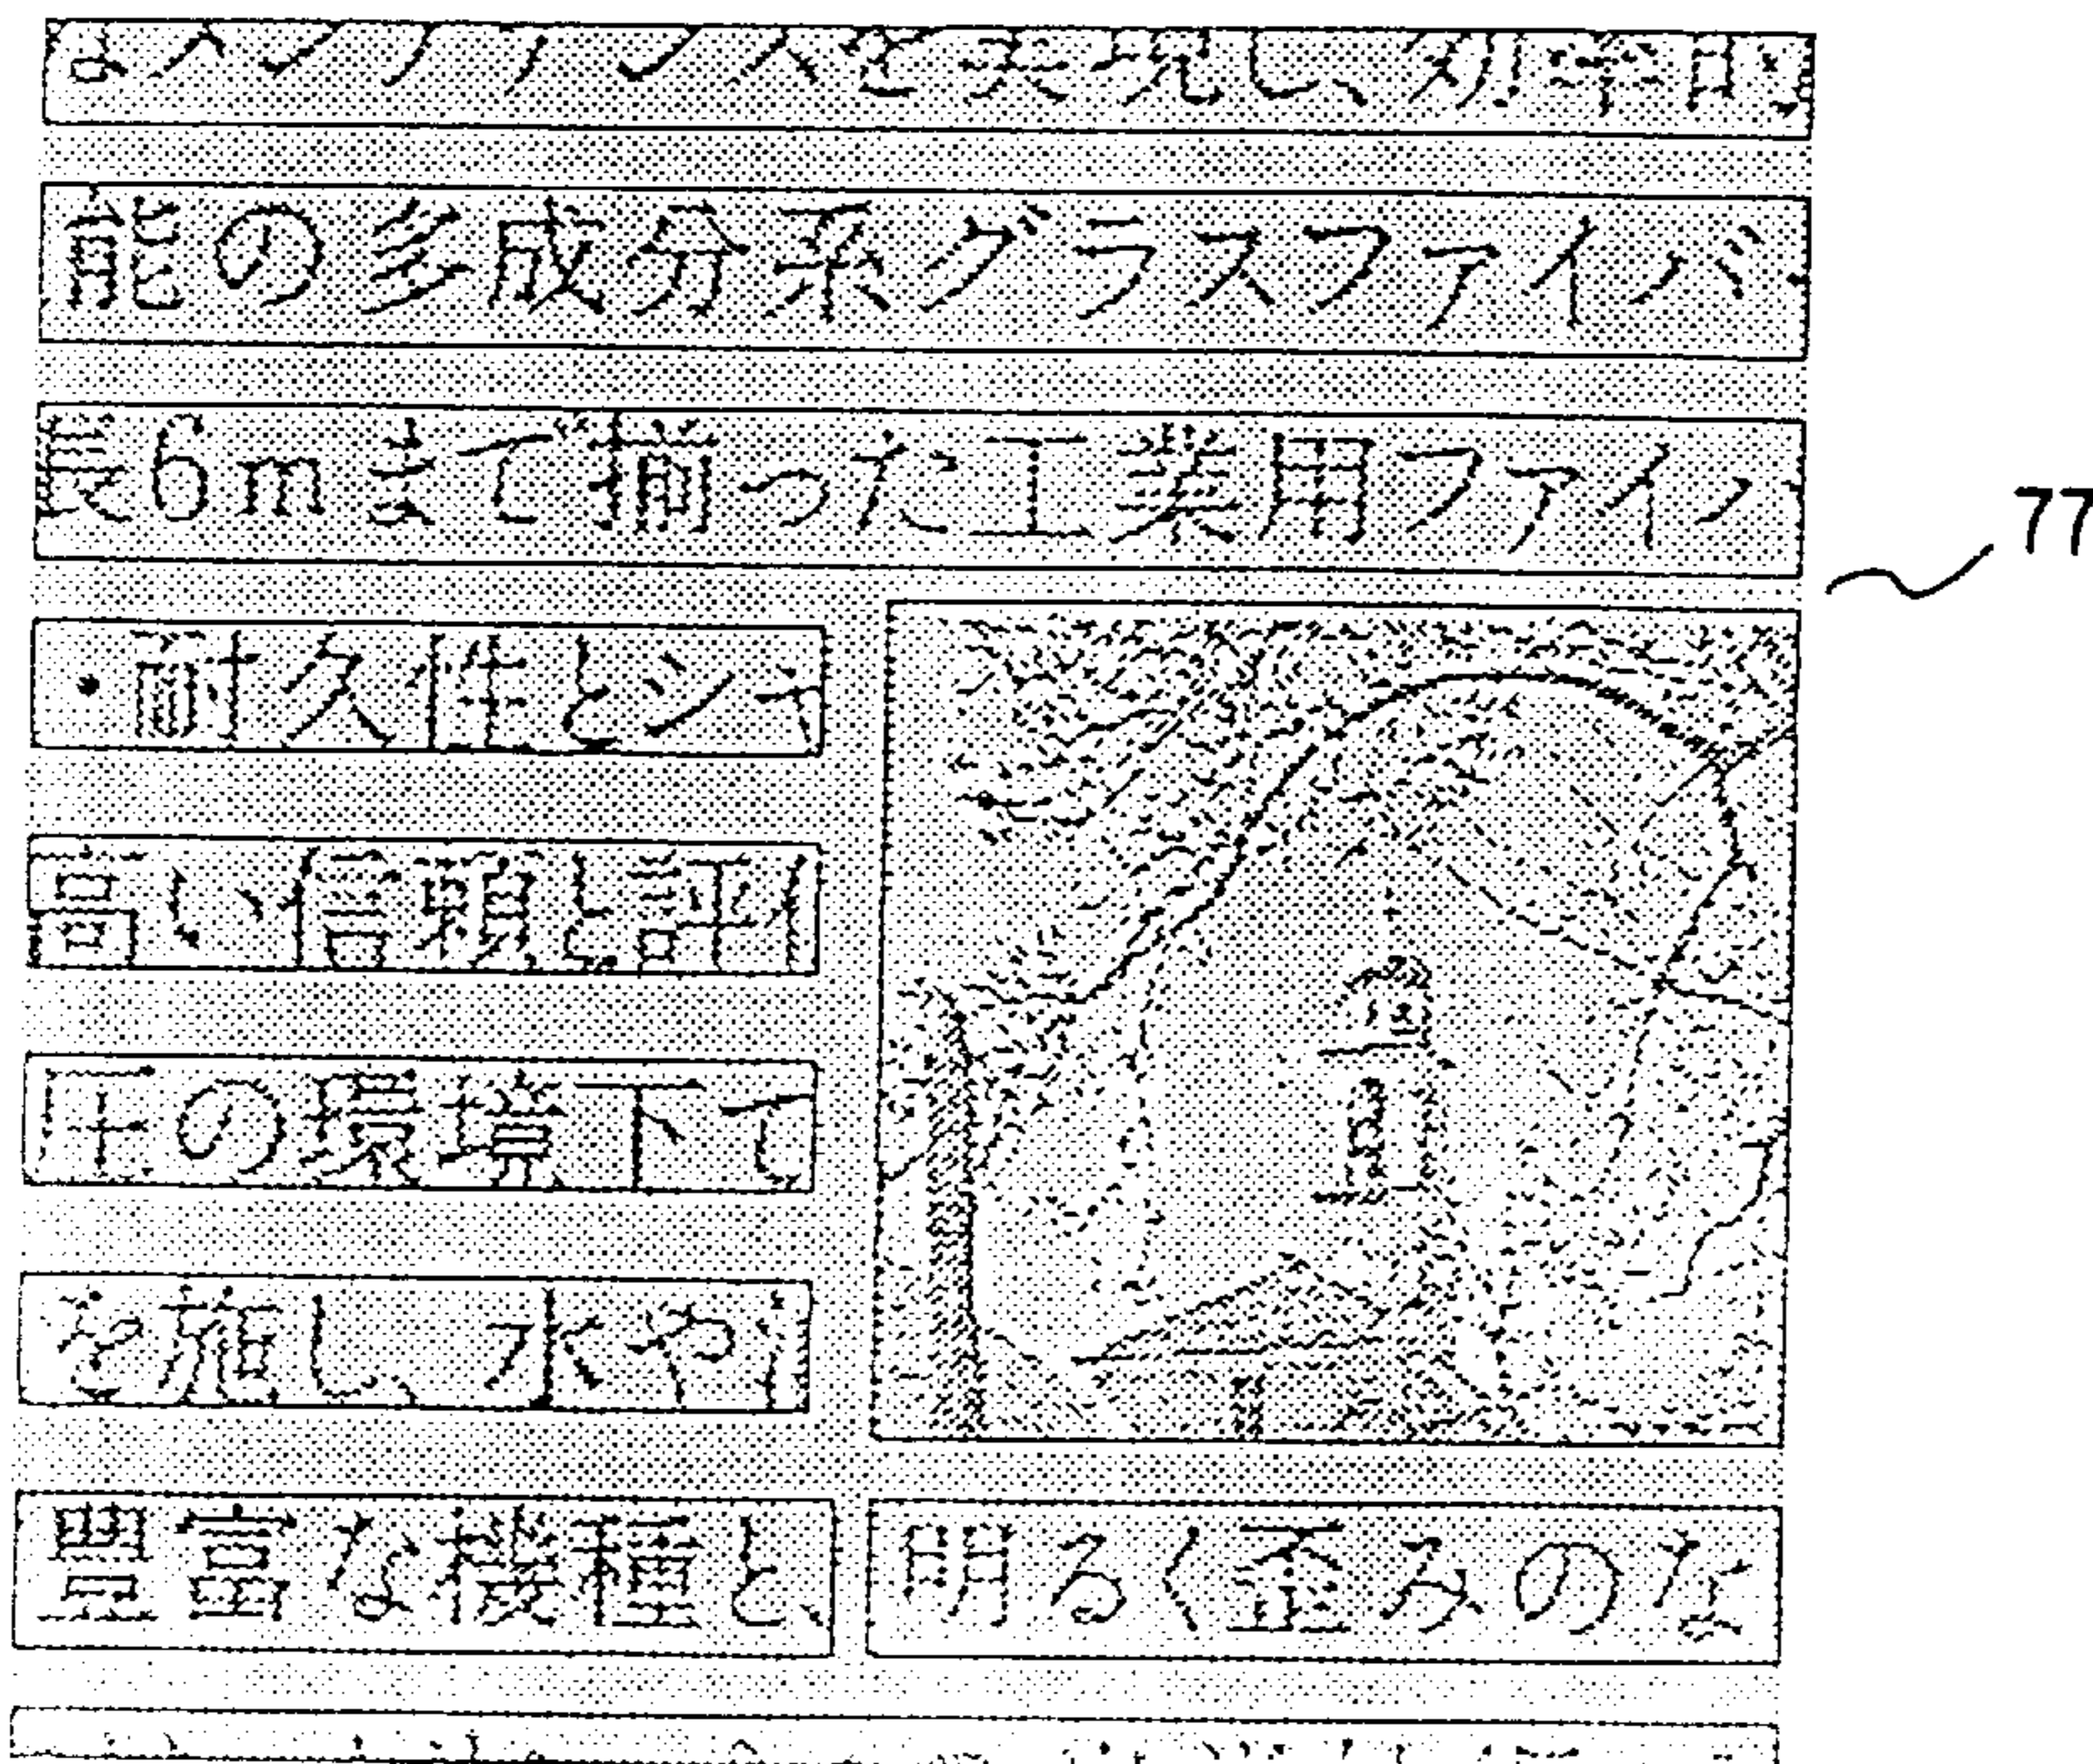 なメンテナンスを実現し、効率的
能の多成分系グラスファイバ
長6mまで揃った工業用ファイ
・耐久性とシャ
高い信頼と評
圧の環境下で
を施し、水や
豊富な機種と、
明るく歪みのな
77